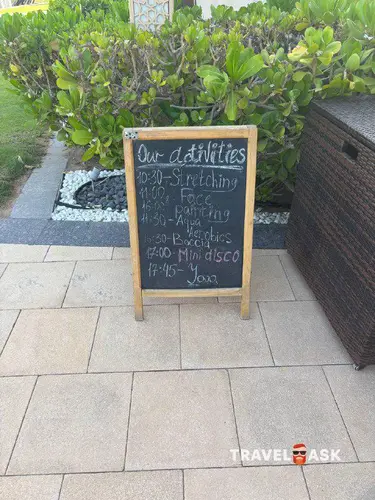 Our activities
10:30 - Stretching
Face
Painting
11:30 - Aqua
Aerobics
Boccia
17:00 - Mini disco
17:45 - Yoga
TRAVEL ASK